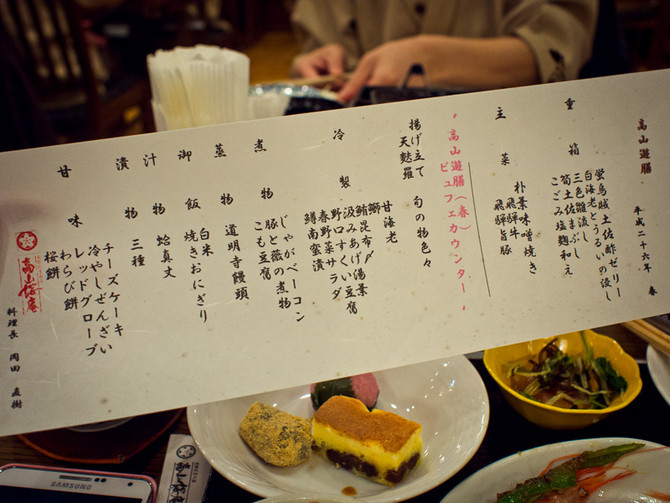 高山遊膳
平成二十六年 春
重箱
蛍烏賊土佐酢ゼリー
白海老とうるいの浸し
三色雛流し
筍土佐まぶし
こごみ塩麹和え
主菜
朴葉味噌焼き
飛騨牛
飛騨旨豚
・高山遊膳(春)
ビュフェカウンター・
揚げ立て 旬の物色々
天麩羅
甘海老
冷製
鰤
鮪昆布〆
汲みあげ湯葉
野口すくい豆腐
春野菜サラダ
鱒南蛮漬
煮物
じゃがベーコン
豚と蕨の煮物
こも豆腐
蒸物
道明寺饅頭
御飯
白米
焼きおにぎり
汁
蛤真丈
漬物
三種
甘味
チーズケーキ
冷やしぜんざい
レッドグローブ
わらび餅
桜餅
料理長 岡田 直樹
SAMSUNG